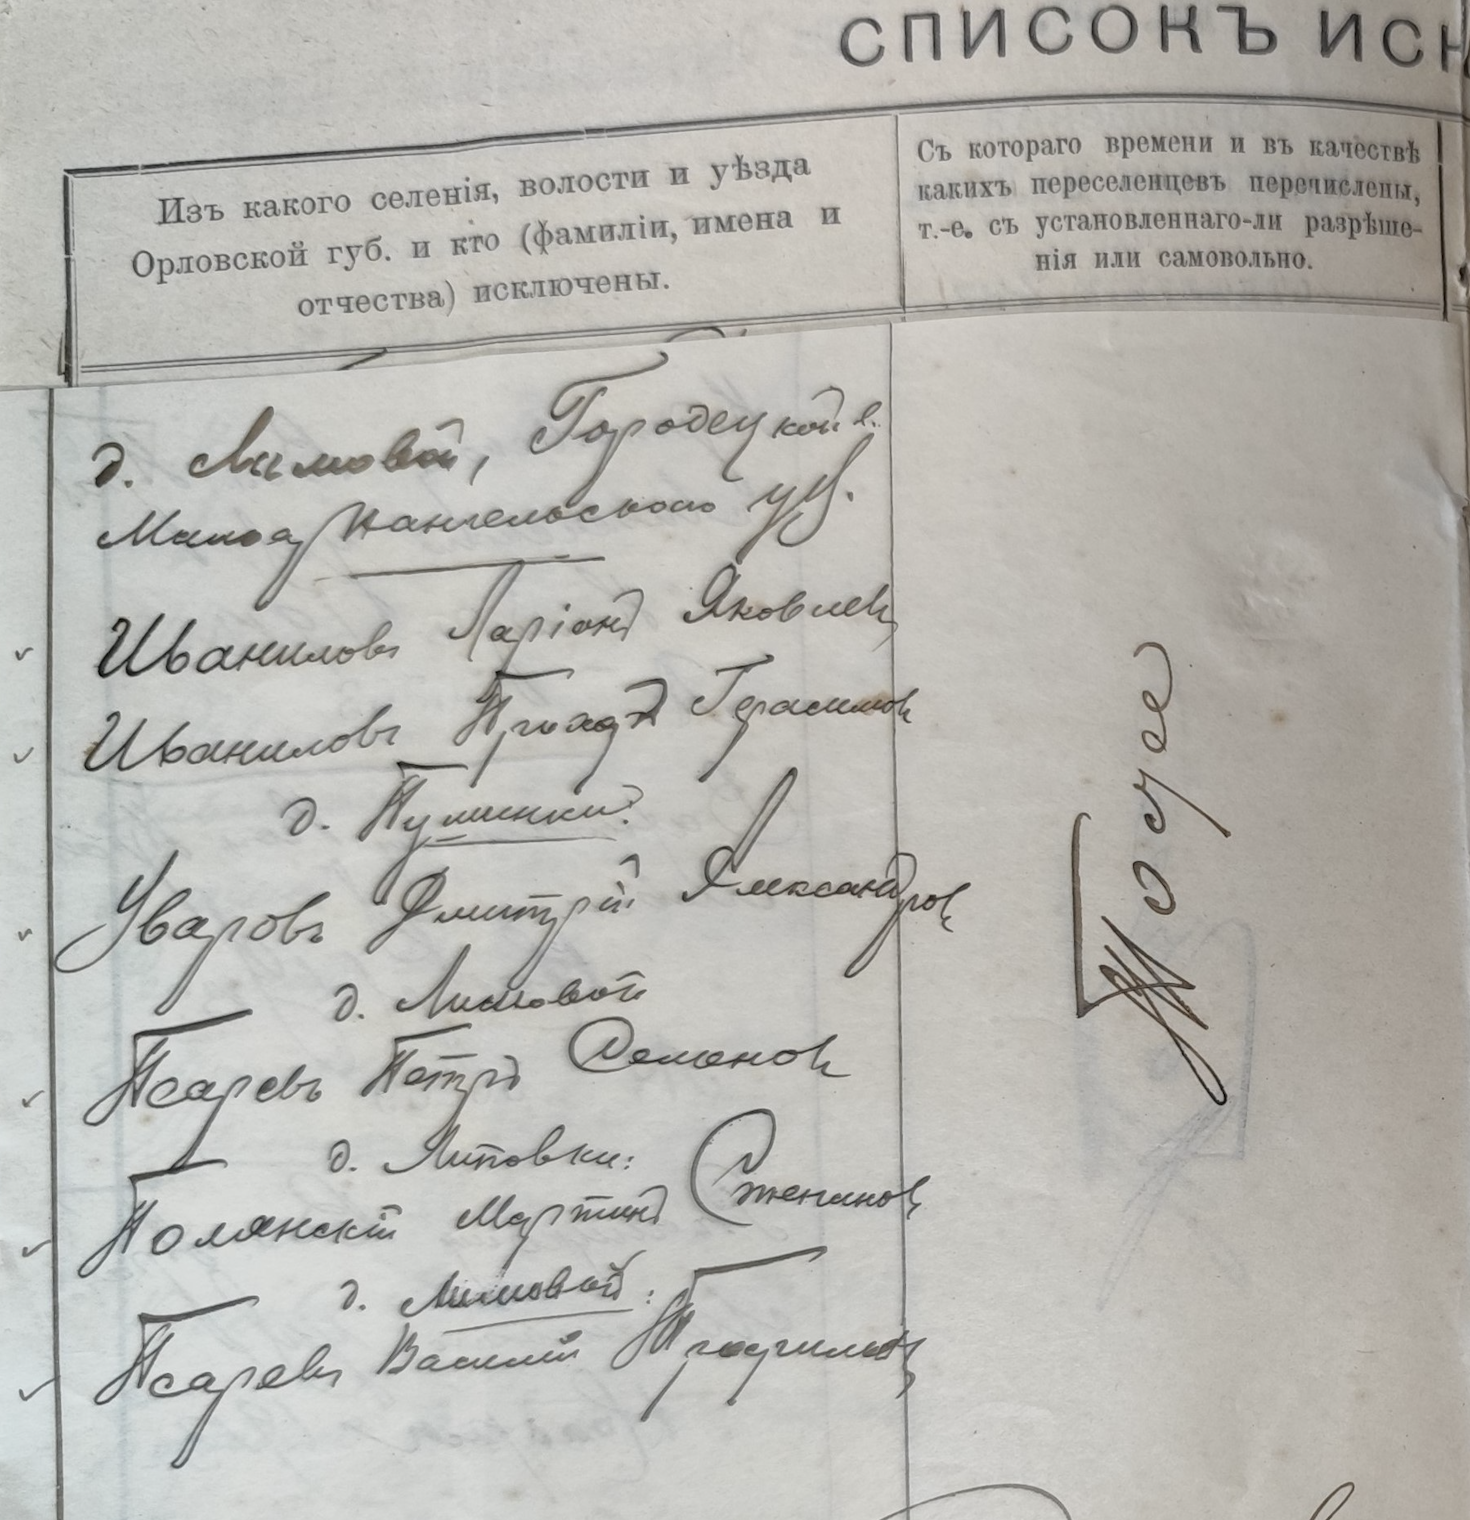 СПИСОКЪ ИСК
Изъ какого селенія, волости и уѣзда
Орловской губ. и кто (фамиліи, имена и
отчества) исключены.
Съ котораго времени и въ качествѣ
какихъ переселенцевъ перечислены,
т.-е. съ установленнаго-ли разрѣше-
нія или самовольно.
д. Лимовой, Городецкой в.
Малоархангельскаго уѣ.
Иваниловъ Ларіонъ Яковлев
Иваниловъ Герасимов
д.
Уваровъ Дмитрій Александров
д. Лимовой
Псаревъ Петръ Семенов
д. Липовки:
Полянскій Мартинъ
д. Лимовой:
Псаревъ Василій
Тоже